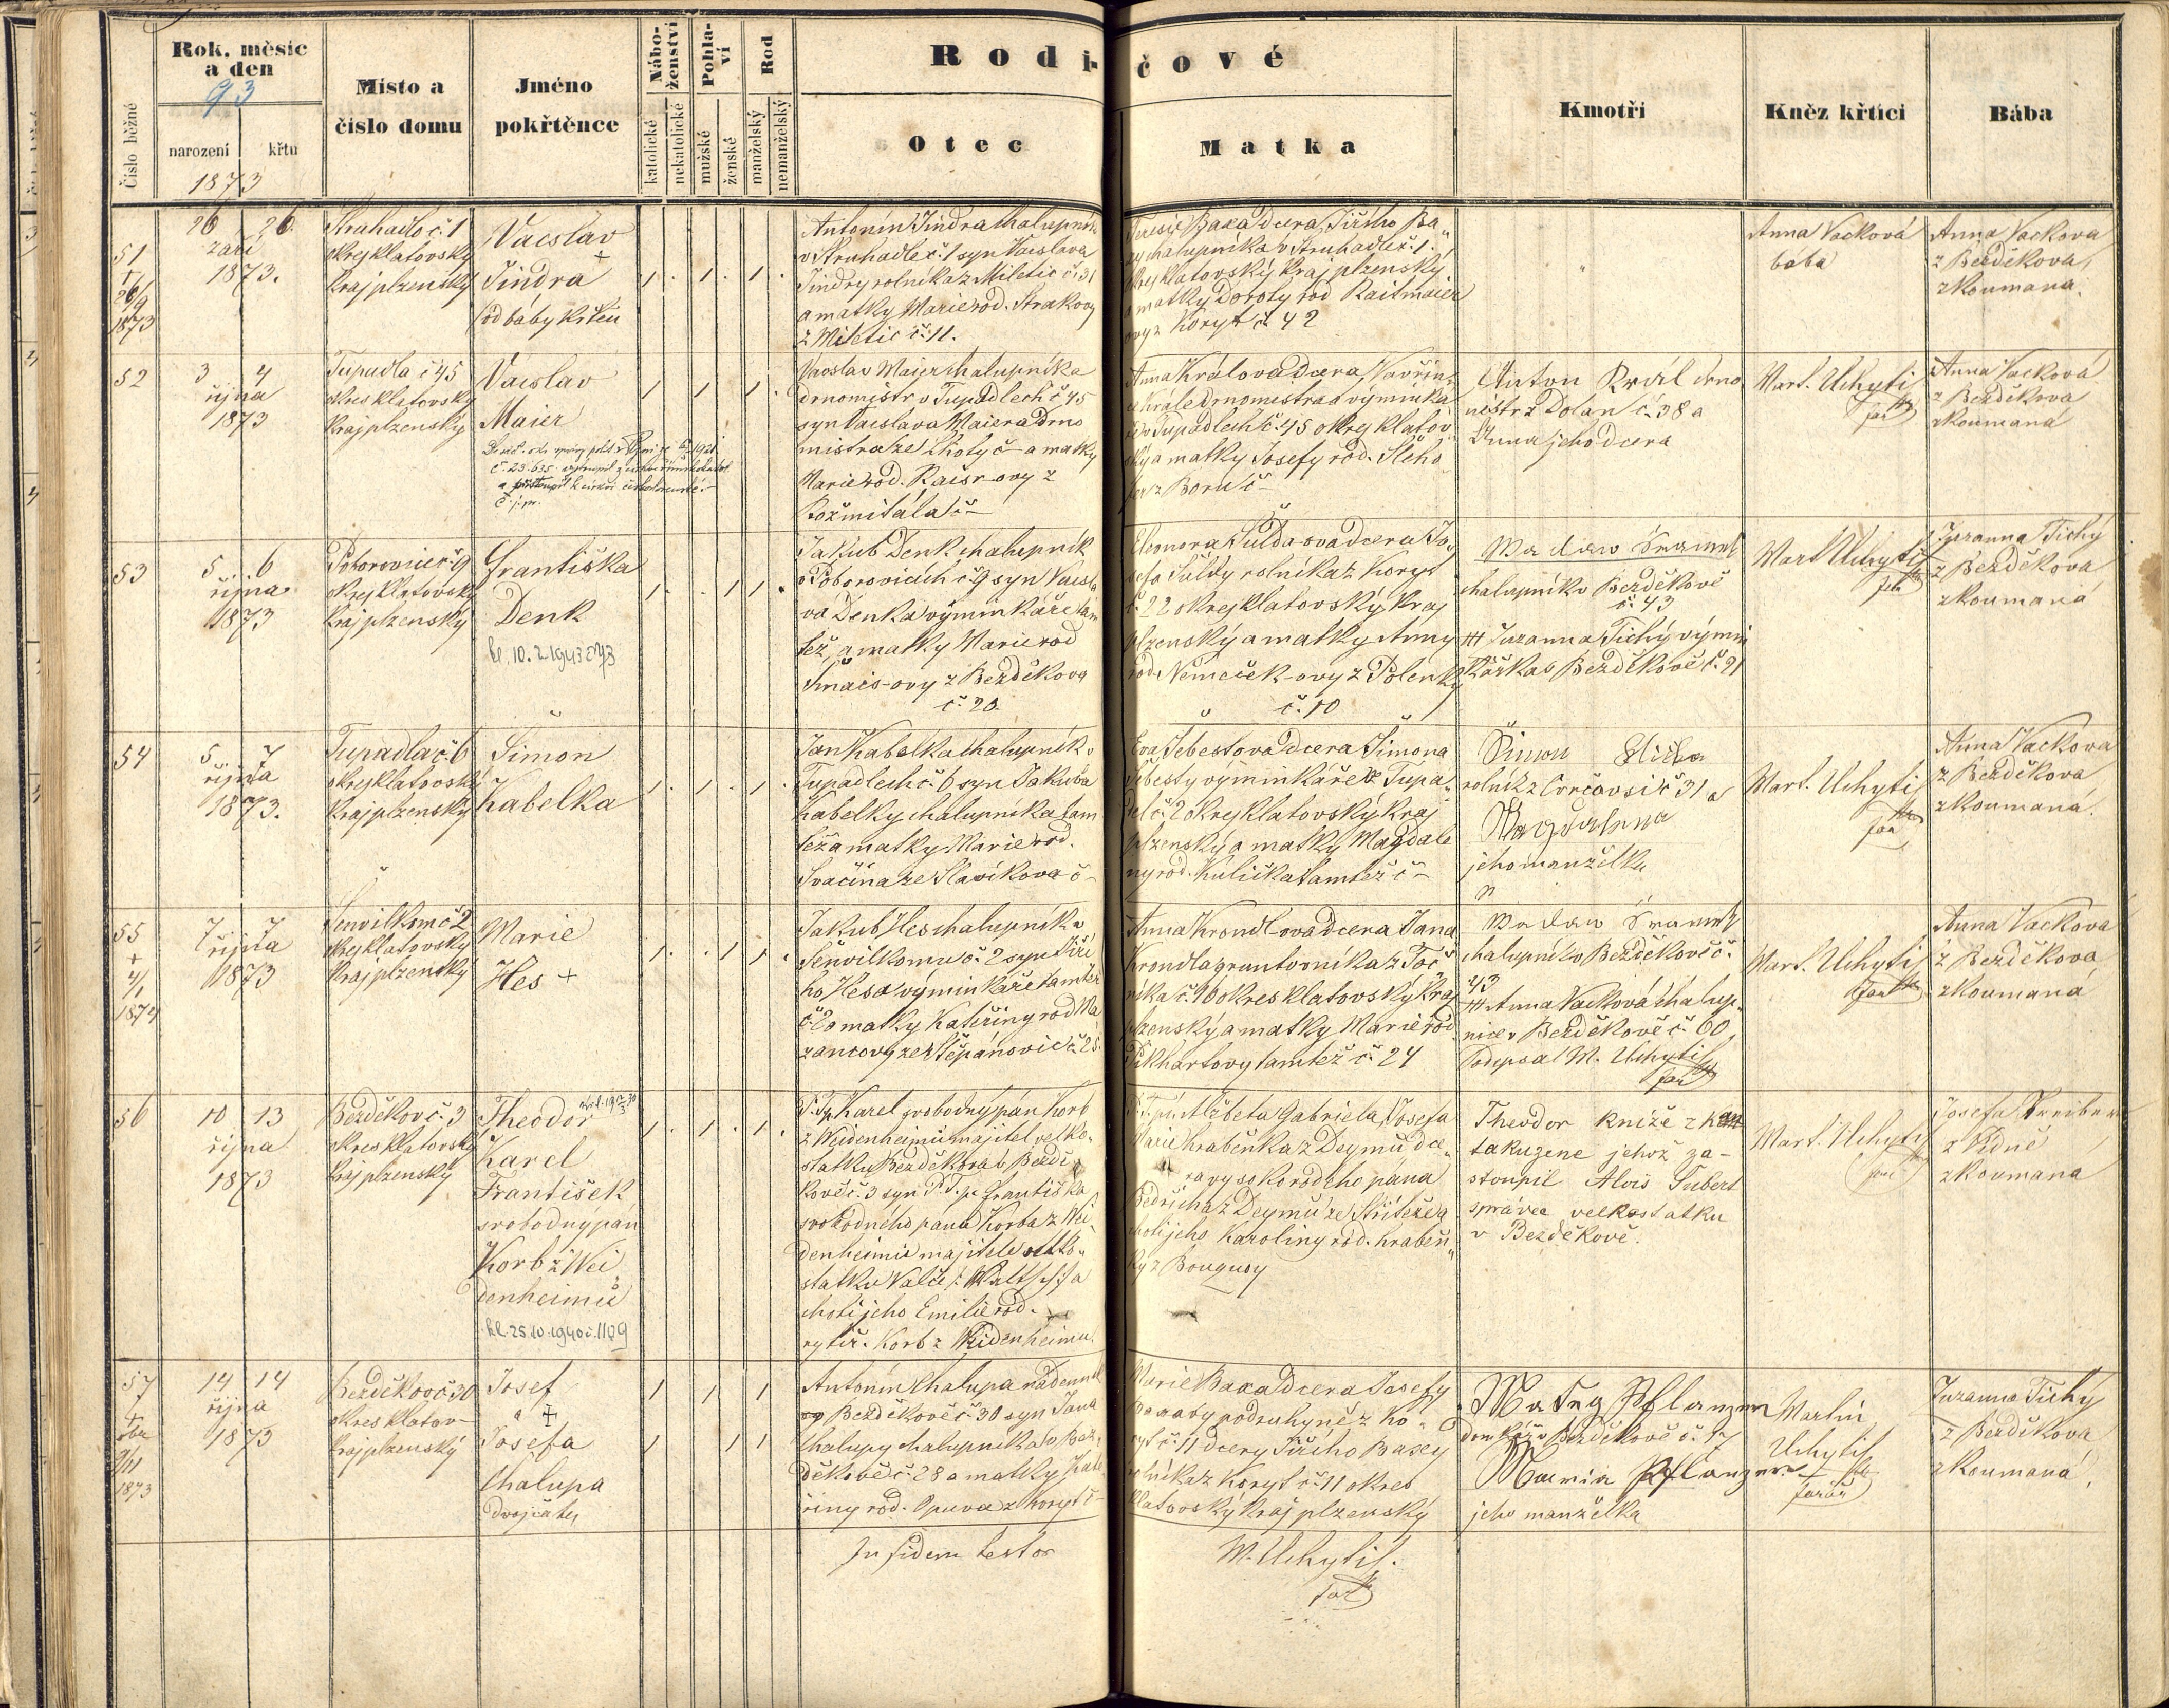 Rok. měsíc
a den
93
narození
křtu
1873
Číslo běžné
Místo a
číslo domu
Jméno
pokřtěnce
Nábo-
ženství
katolické
nekatolické
Pohla-
ví
mužské
ženské
Rod
manželský
nemanželský
Rodi-
čové
Otec
Matka
Kmotři
Kněz křtící
Bába
51
†
26/9
1873
26 26.
září
1873.
Struhadlo č. 1
okres klatovský
kraj plzenský
Vácslav
†
Jindra
(od báby křtěn
Antonín Jindra chalupník
v Struhadle č. 1 syn Vácslava
Jindry rolníka z Miletic č. 31
a matky Marie rod. Strakovy
z Miletic č. 11.
Baxa dcera Jiřího Ba„
xy chalupníka v Struhadle č. 1.
okres klatovský kraj plzenský
a matky Doroty rod Raitmaier
ovy z Koryt č. 42
„
Anna Vacková
bába
Anna Vackova
z Bezděkova,
zkoumaná.
52
3 4
října
1873
Tupadla č 45
okres klatovský
kraj plzenský
Vácslav
Maier
Vácslav Maier chalupník a
drnomistr v Tupadlech č 45
syn Vácslava Maiera drno
mistra ze Lhoty č – a matky
Marie rod. Kaisr-ovy z
Rožmitála č –
Anna Králova dcera Vavřin„
ce Krále drnomistra a výminká
ře v Tupadlech č. 45 okres klatov„
ský a matky Josefy rod.
z Boru č –
Anton Král drno
mistr z Dolan č. 38 a
Anna jeho dcera
Mart. Uchytil
far
Anna Vackova
z Bezděkova
zkoumaná
53
5 6
října
1873
Poborovice č. 9
okres klatovský
kraj plzenský
Františka
Denk
Jakub Denk chalupník
v Poborovicích č. 9 syn Vácsla
va Denka výminkáře tam
též, a matky Marie rod
Šmais-ovy z Bezděkova
č. 20.
Eleonora Šulda-ova dcera Jo„
sefa Šuldy rolníka z Koryt
č. 22 okres klatovský kraj
plzenský a matky Anny
rod. Nemeček-ovy z Polenky
č. 10
chalupník v Bezděkově
č. 43
††† Zuzanna Tichý výmin
kářka v Bezděkově č. 21
Mart Uchytil
far
Zuzanna Tichý
z Bezděkova
zkoumaná
54
5 7
října
1873.
Tupadla č. 6
okres klatovský
kraj plzenský
Šimon
Kabelka
Jan Kabelka chalupník v
Tupadlech č. 6 syn Jakuba
Kabelky chalupníka tam
též a matky Marie rod.
Svačina ze Slavíkova č –
Eva Šebestova dcera Šimona
Šebesty výminkáře z Tupa„
del č. 2 okres klatovský kraj
plzenský a matky Magdale
ny rod. Kulička tamtéž č –
Šimon
rolník z č 31 a
Magdalena
jeho manželka
Mart. Uchytil
far
Anna Vackova
z Bezděkova
zkoumaná.
55
†
4/1
1874
7 7
října
1873
č 2
okres klatovský
kraj plzenský
Marie
Hes †
Jakub Hes chalupník v
č. 2 syn Jiří
ho Hesa výminkáře tamtéž
č. 2 a matky Kateřiny rod Ma
zancovy ze Štěpánovic č. 25.
Anna Krondlova dcera Jana
Krondla gruntovníka z Toč„
níka č. 16 okres klatovský kraj
plzenský a matky Marie rod
Pikhartovy tamtéž č. 24
chalupník v Bezděkově č.
43
††† Anna Vacková chalup„
nice v Bezděkově č. 60
Podepsal M. Uchytil
far
Mart. Uchytil
far
Anna Vackova
z Bezděkova
zkoumaná
56
10 13
října
1873
Bezděkov č. 3
okres klatovský
kraj plzenský
Theodor
Karel
František
svobodný pán
Korb z Wei
denheimů
Karel svobodný pán Korb
z Weidenheimů majitel velko„
statku Bezděkova v Bezdě„
kově č. 3 syn P. T. p. Františka
svobodného pána Korba z Wei„
denheimů majitele velko„
statku Valče (: Waltsch :) a
choti jeho Emilie rod.
rytíř. Korb z Weidenheimu.
Alžběta Gabriela Josefa
Marie hraběnka z Deymů dce„
ra vysokorodého pána
Bedřicha z Deymů ze Střiteže a
choti jeho Karoliny rod. hraběn„
ky z Bouquoy
Theodor kníže z
takuzene jehož za-
stoupil Alois Šubert
správce velkostatku
v Bezděkově.
Mart. Uchytil
far
Josefa
z Kdně
zkoumana
57
†
1873
14 14
října
1873
Bezděkov č 30
okres klatov-
kraj plzenský
Josef
a †
Josefa
Chalupa
dvojčata
Antonín Chalupa nádenník
v Bezděkově č. 30 syn Jana
Chalupy chalupníka v Bez„
děkově č. 28 a matky Kate
řiny rod. Opava z Koryt č –
Marie Baxa dcera Josefy
podruhyně z Ko„
ryt č. 11 dcery Jiřího Baxy
rolníka z Koryt č. 11 okres
klatovský kraj plzenský
Matej Pflanzer
domkář v Bezděkově č. 17
Maria Pflanzer
jeho manželka
Martin
Uchytil
farář
Zuzanna Tichý
z Bezděkova
zkoumaná
In fidem testor
M. Uchytil.
far